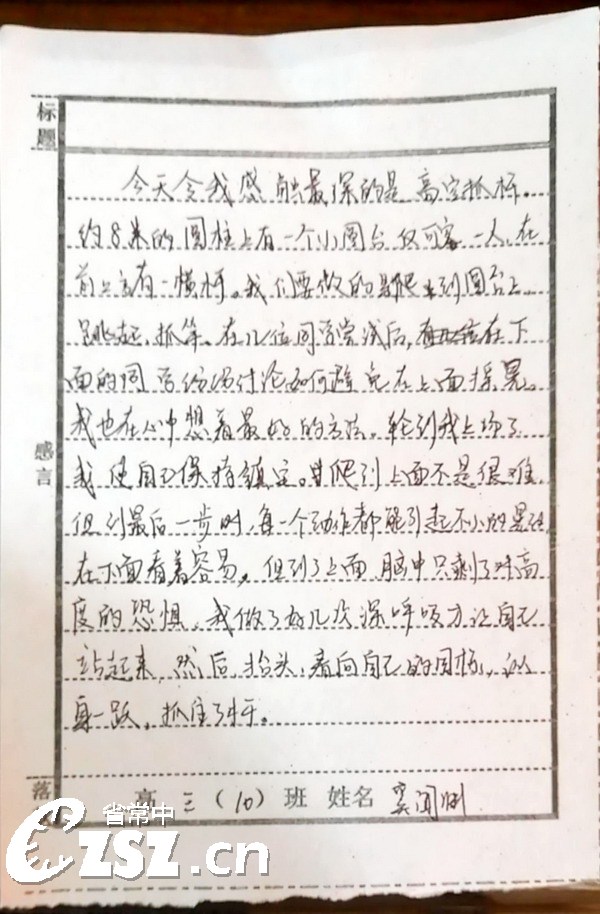 标题
今天令我感触最深的是高空抓杆。
约8米的圆柱上有一个小圆台仅可容一人,在
前上方有一横杆。我们要做的是爬上到圆台上,
跳起,抓竿。在几位同学尝试后,在下
面的同学纷纷讨论如何避免在上面摇晃。
我也在心中想着最好的方法。轮到我上场了
我使自己保持镇定。爬到上面不是很难,
但到最后一步时,每一个动作都能引起不小的晃动
在下面看着容易。但到了上面,脑中只剩了对高
度的恐惧。我做了好几次深呼吸方让自己
站起来,然后,抬头,看向自己的目标,纵
身一跃,抓住了杆。
感言
落
高三(10)班 姓名 窦闻
省常中
CZSZ.cn